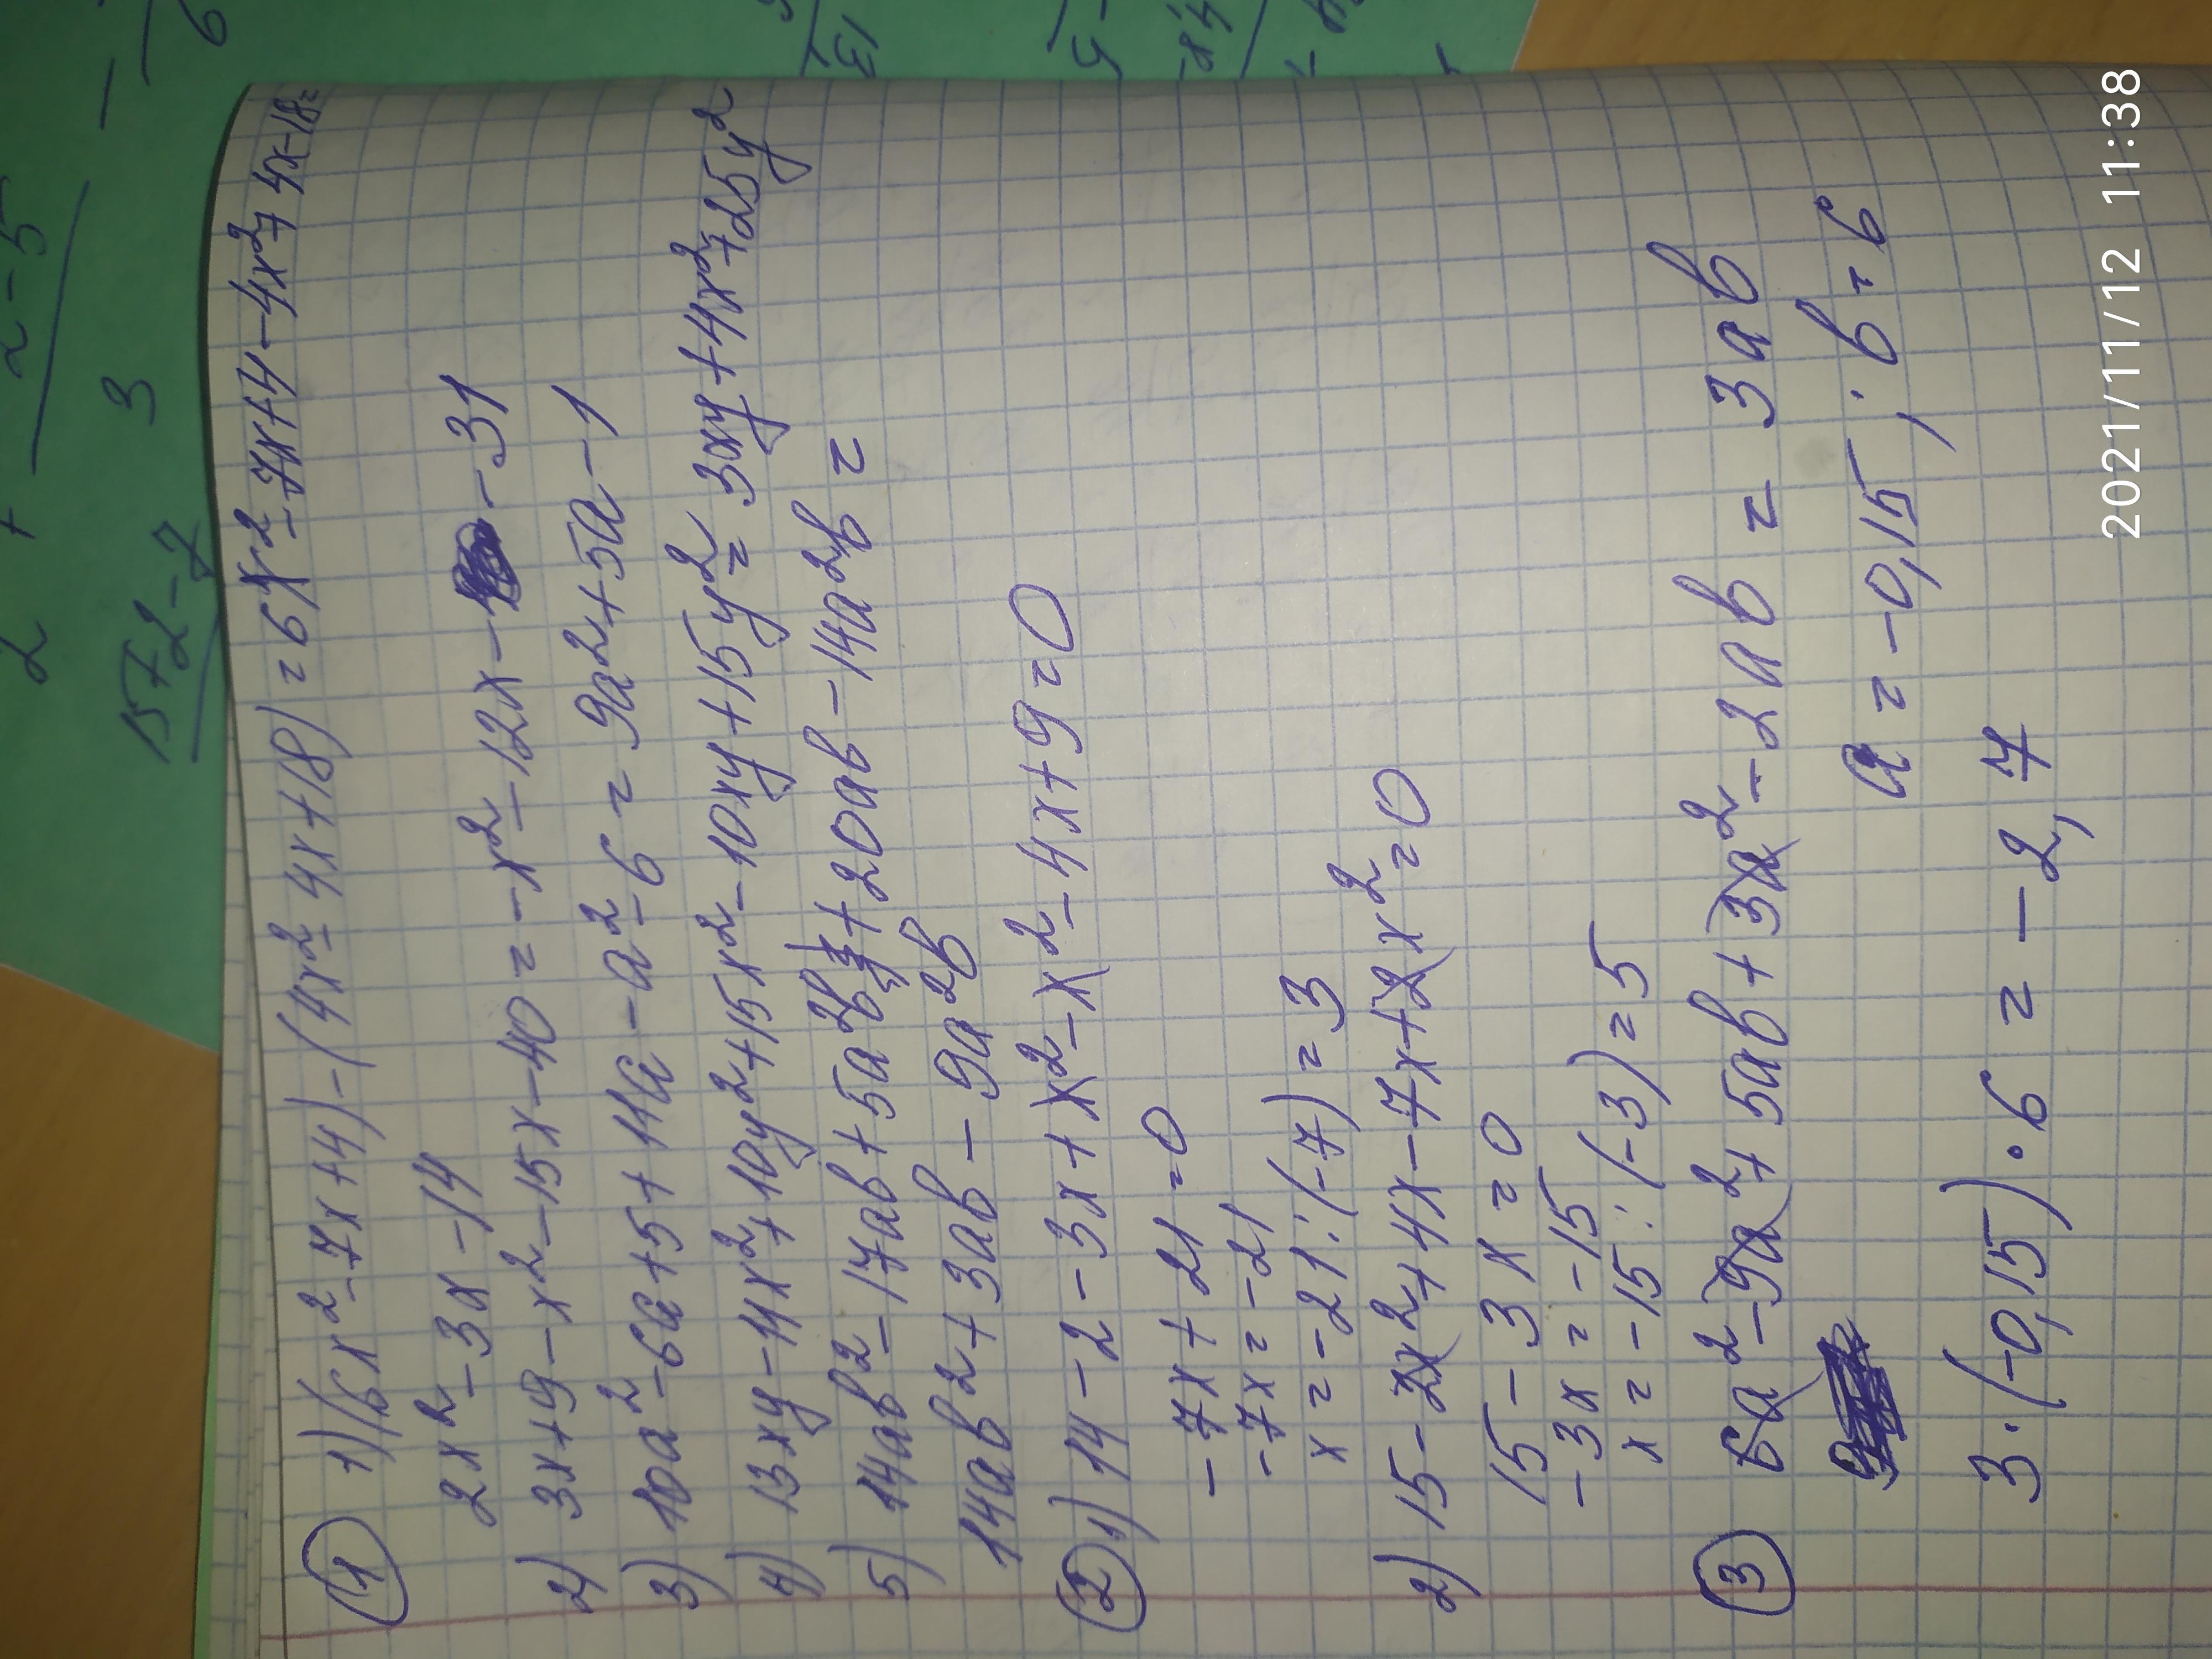 ① 1) (6x²-7x+4)-(4x²-4x+18)=6x²-7x+4-4x²+4x-18=
2x²-3x-14
2) 3x+9-x²-15x-40=-x²-12x-31
3) 10a²-6a+5+11a-a²-6=9a²+5a-1
4) 13xy-11x²+10y²+15x²-10xy+15y²=3xy+4x²+25y²
5) 14ab²-17ab+5a²b+20ab-14a²b=
14ab²+3ab-9a²b
② 1) 14-2-3x+x²-x²-4x+9=0
-7x+21=0
-7x=-21
x=-21:(-7)=3
2) 15-2x²+4x-7x+2x²=0
15-3x=0
-3x=-15
x=-15:(-3)=5
③ 6a²-9a²+5ab+3a²-2ab=3ab
a=-0,15; b=6
3·(-0,15)·6=-2,7
2021/11/12 11:38